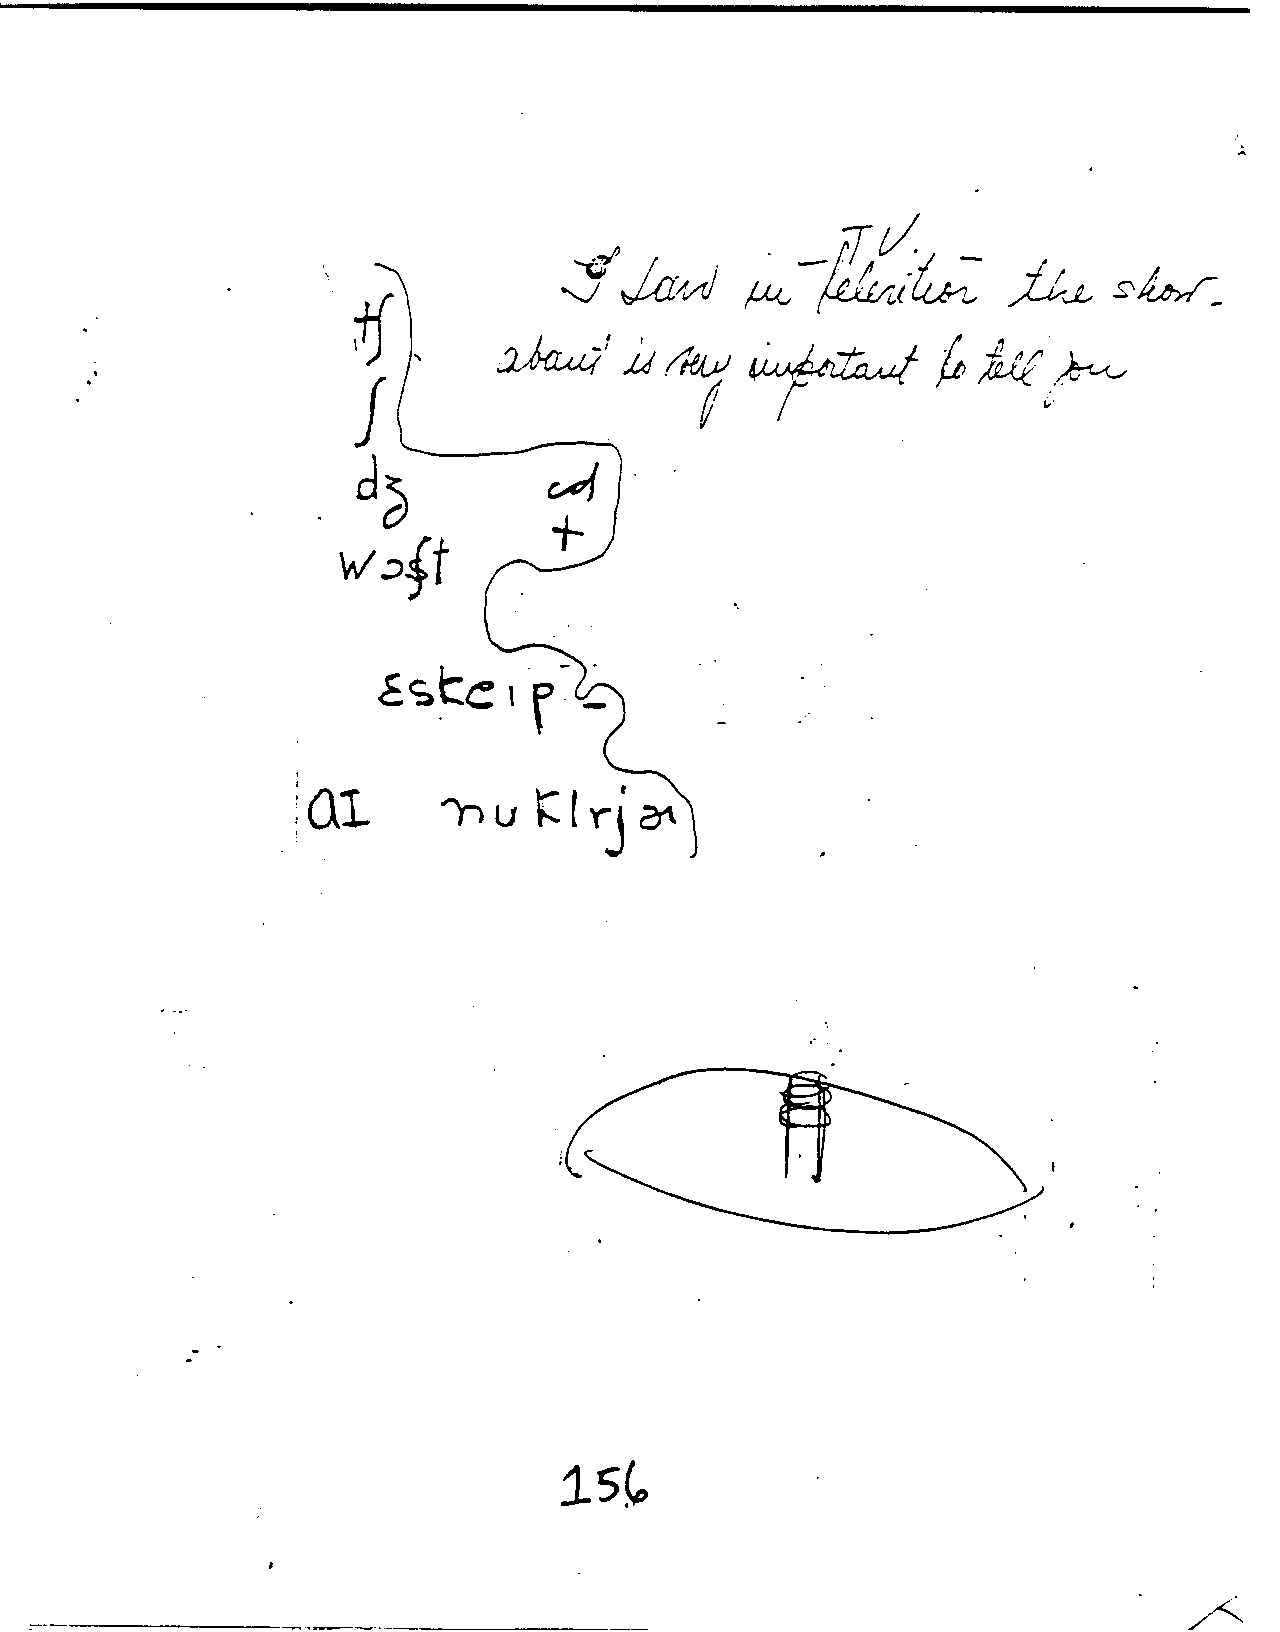 TV.
I saw in -television- the show-
about is very important to tell you
tʃ
ʃ
dʒ ed
wɔʃt t
ɛskeɪp -
aI nuklrjər
156